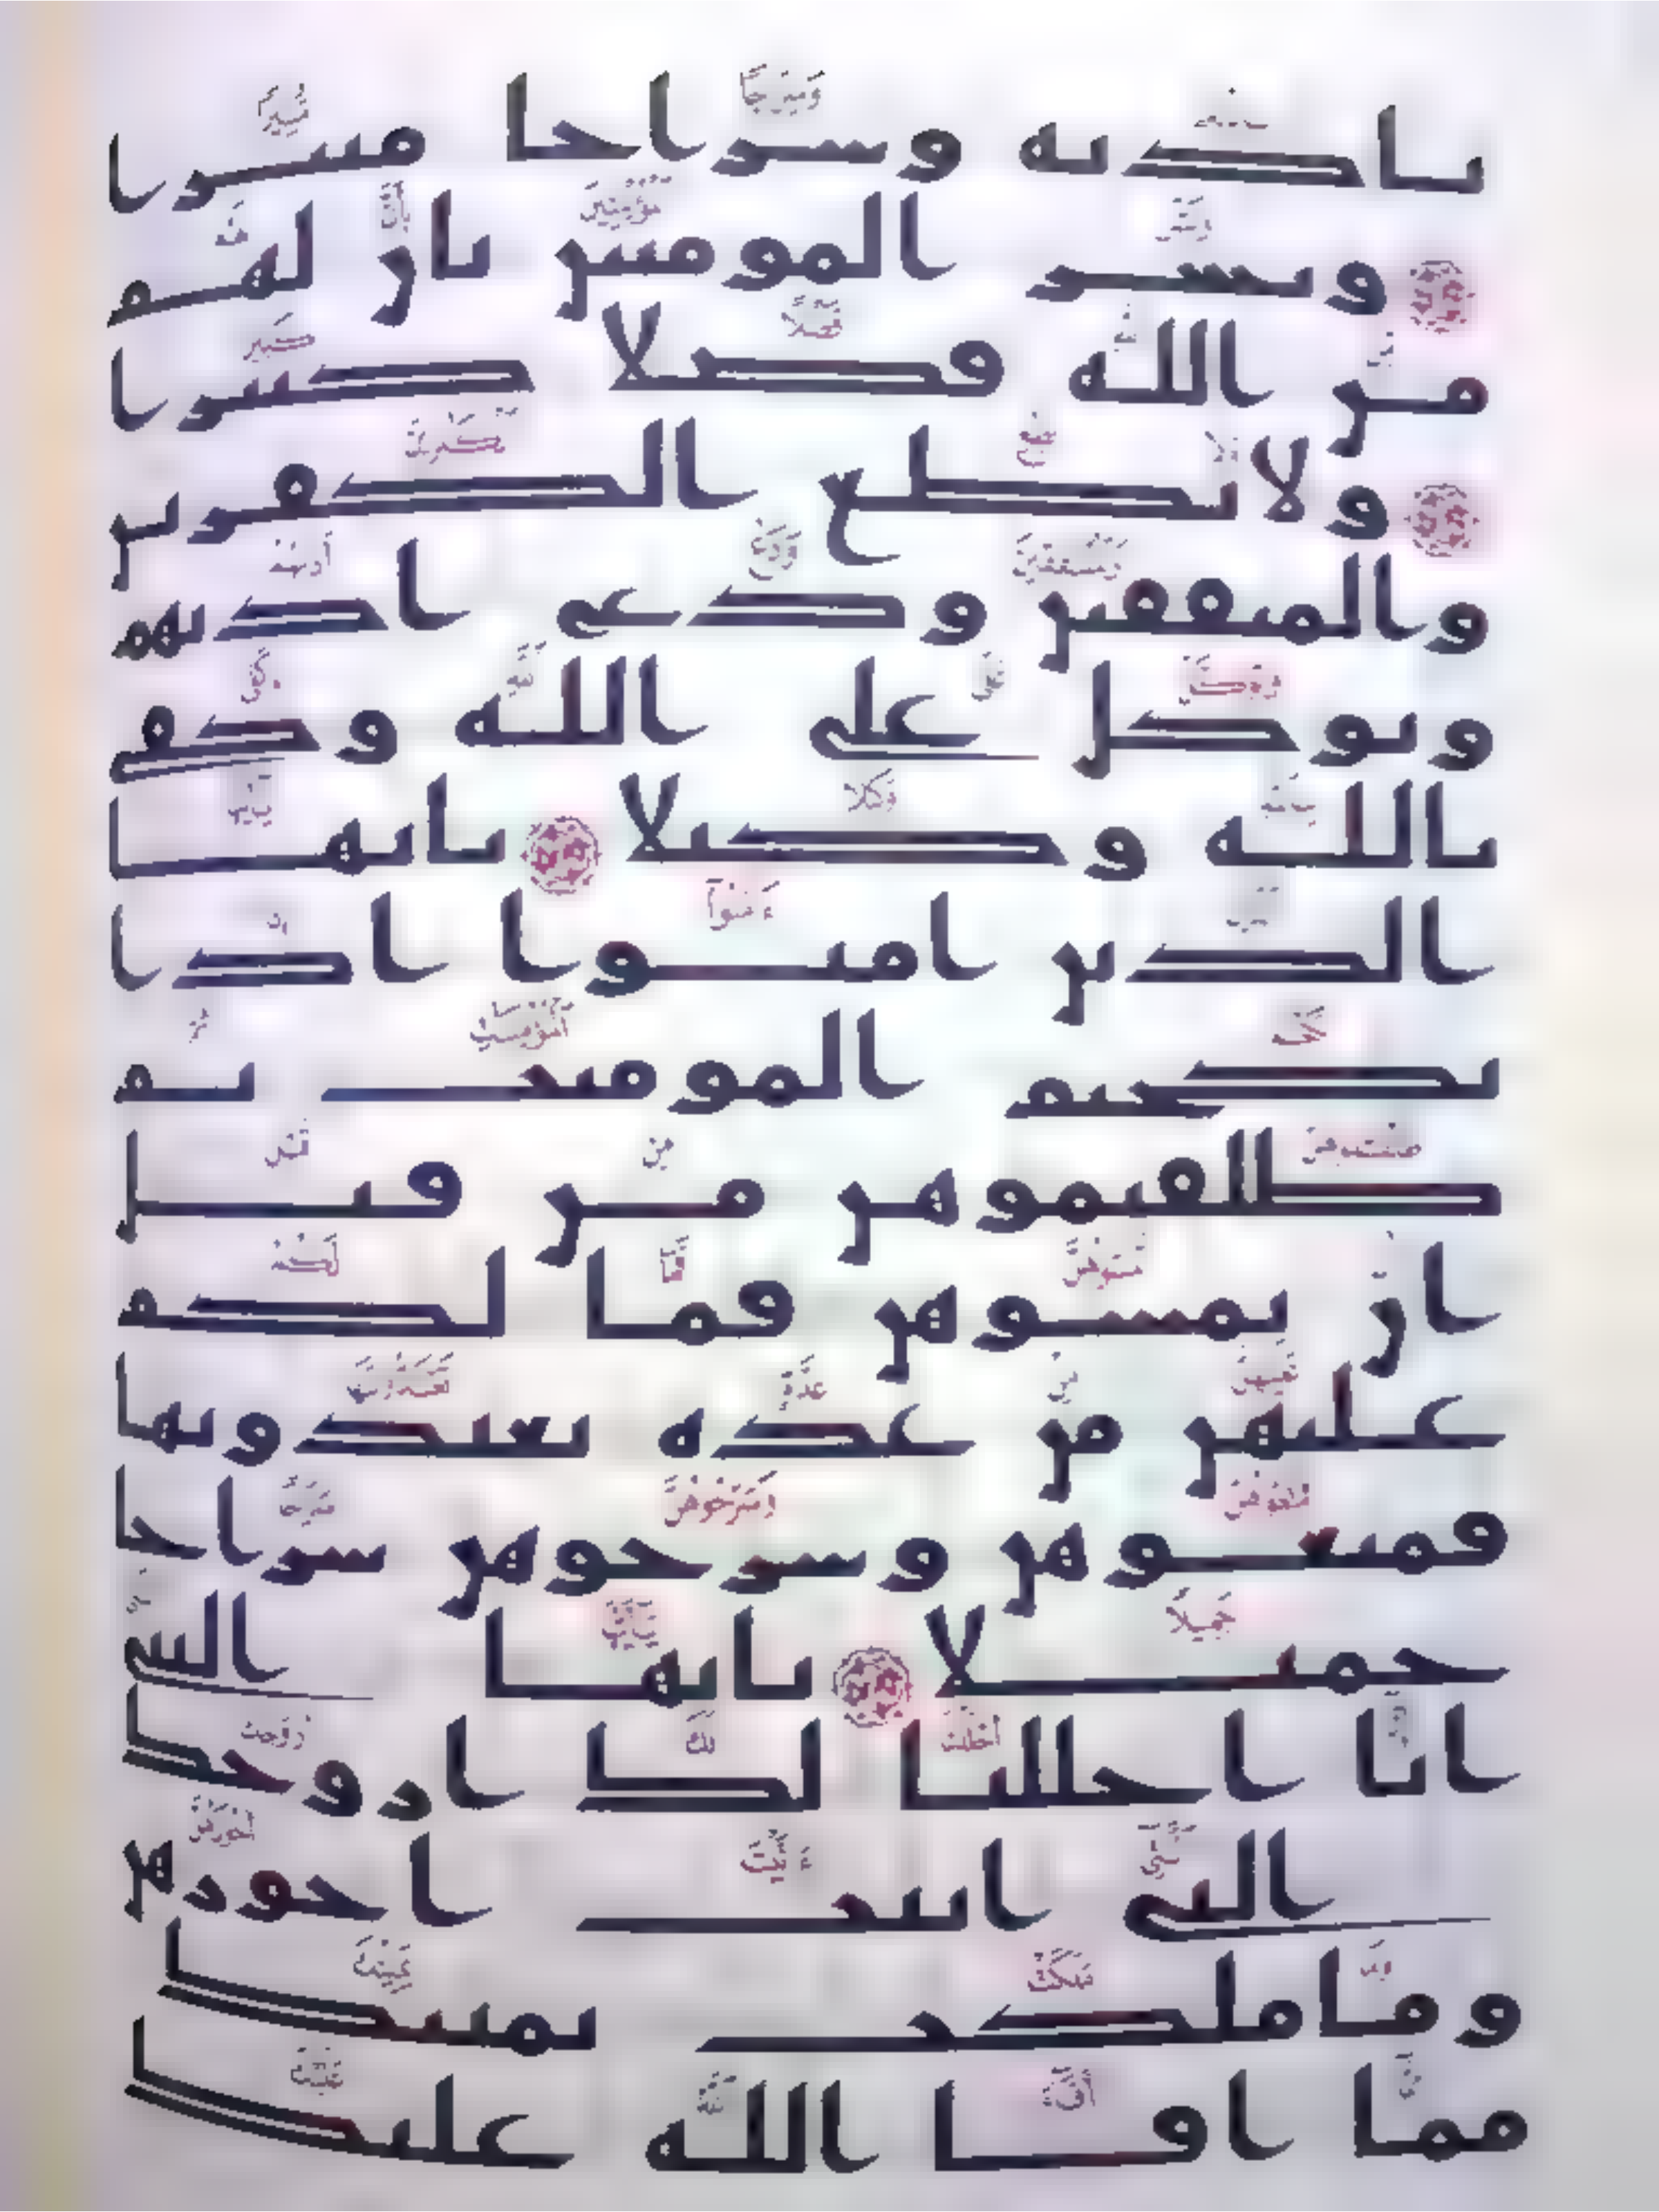 باذنه وسراجا منيرا
وبشر المومنين بان لهم
من الله فضلا كبيرا
ولا تطع الكفرين
والمنفقين ودع اذيهم
وتوكل على الله وكفى
بالله وكيلا يايها
الذين امنوا اذا
نكحتم المومنت ثم
طلقتموهن من قبل
ان تمسوهن فما لكم
عليهن من عدة تعتدونها
فمتعوهن وسرحوهن سراحا
جميلا يايها النبي
انا احللنا لك ازوجك
التي اتيت اجورهن
وما ملكت يمينك
مما افا الله عليك